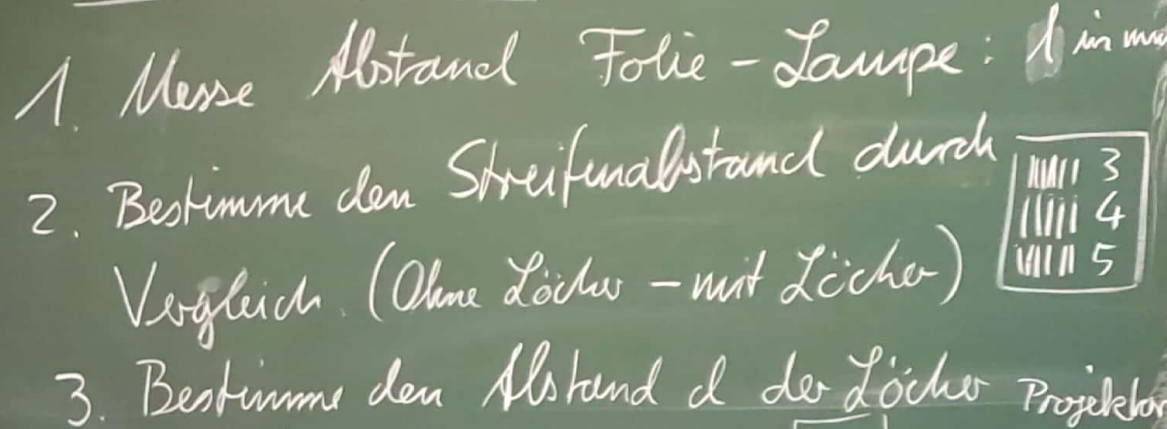 1. Messe Abstand Folie - Lampe: l in mm
2. Bestimme den Streifenabstand durch
Vergleich. (Ohne Löcher - mit Löcher)
3
4
5
3. Bestimme den Abstand d der Löcher Projektor